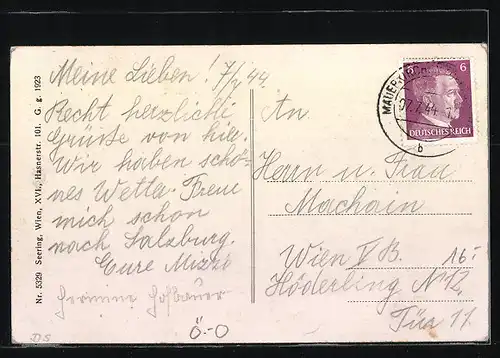 Meine Lieben! 7/7 44.
Recht herzliche
Grüße von hier.
Wir haben schö-
nes Wetter. Freue
mich schon
nach Salzburg.
Eure Mizzi
Hermine
An
Herrn u. Frau
Machain
Wien IV B.
N° 12,
Tür 11.
16.-
Ö-O
DS
Nr. 5329 Seering, Wien, XVI., Hasnerstr. 101. G. g. 1923
6
DEUTSCHES REICH
MAUERKIRCHEN
b